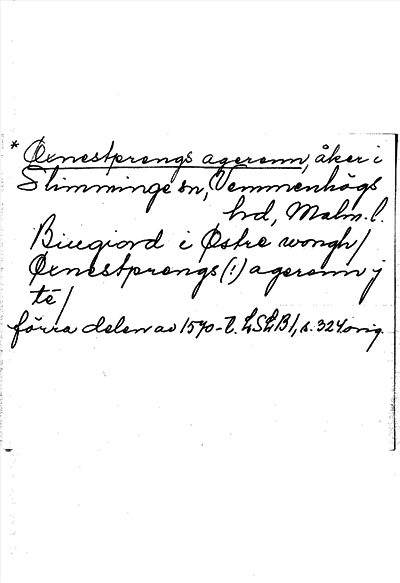 * Øxnestprengs agerenn, åker i
Slimminge sn, Vemmenhögs
hrd, Malm. l.
Biugiord i Østre wongh/
Øxnestprengs(!) agerenn j
té/
förra delen av 1570-t. LSLB1, s. 324 orig